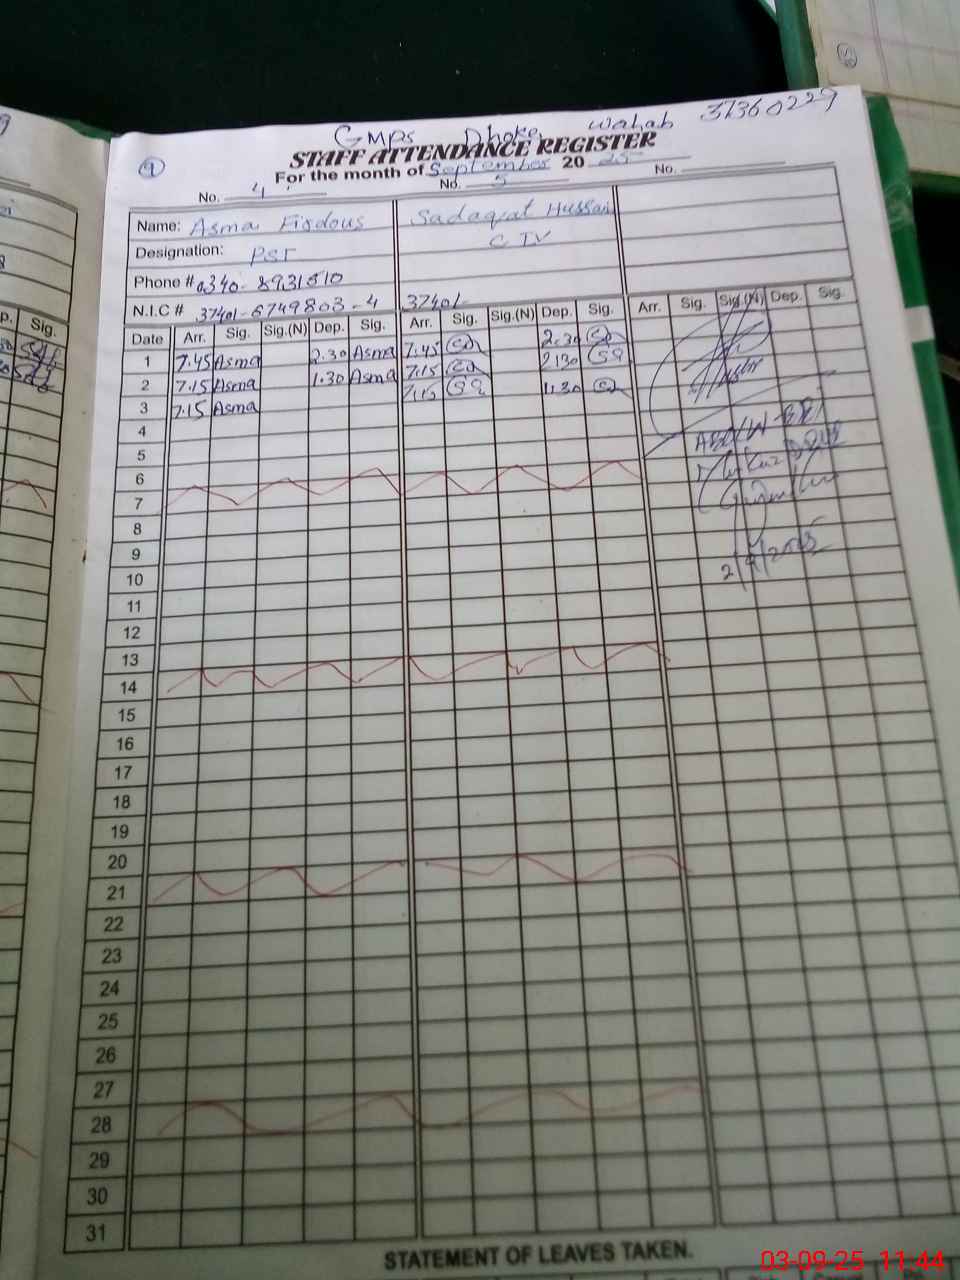 GMPS Dhoke Wahab 37360229
9
STAFF ATTENDANCE REGISTER
For the month of September 20 25
No. 4 No. 5 No.
Name: Asma Firdous Sadaqat Hussain
Designation: PST
Phone # 0340-8931510
N.I.C # 37401-6749803-4 37401-
Date Arr. Sig. Sig.(N) Dep. Sig. Arr. Sig. Sig.(N) Dep. Sig. Arr. Sig. Sig.(N) Dep. Sig.
1 7.45 Asma 2.30 Asma 7.45 2.30
2 7.15 Asma 1.30 Asma 7.15 2130
3 7.15 Asma 7.15 1.30
4
5
6
7
8
9
10
2/9/2025
11
12
13
14
15
16
17
18
19
20
21
22
23
24
25
26
27
28
29
30
31
STATEMENT OF LEAVES TAKEN.
p. Sig.
03-09-25 11:44